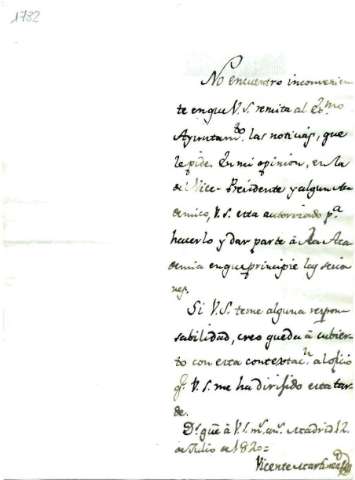 1782
No encuentro inconvenien-
te en que V.S. remita al Exmo
Ayuntamto las noticias, que
le pide. En mi opinion, en la
del Vice-Presidente y algun Aca
demico, V.S. esta autorizado pa
hacerlo y dar parte à la Aca
demia en que principie las sesio
nes.
Si V.S. teme alguna respon
sabilidad, creo queda à cubier
to con esta contextacn al oficio
q. V.S. me ha dirigido esta tar
de.
Ds. gue à V.S. ms. as. Madrid 12
de Julio de
Vicente